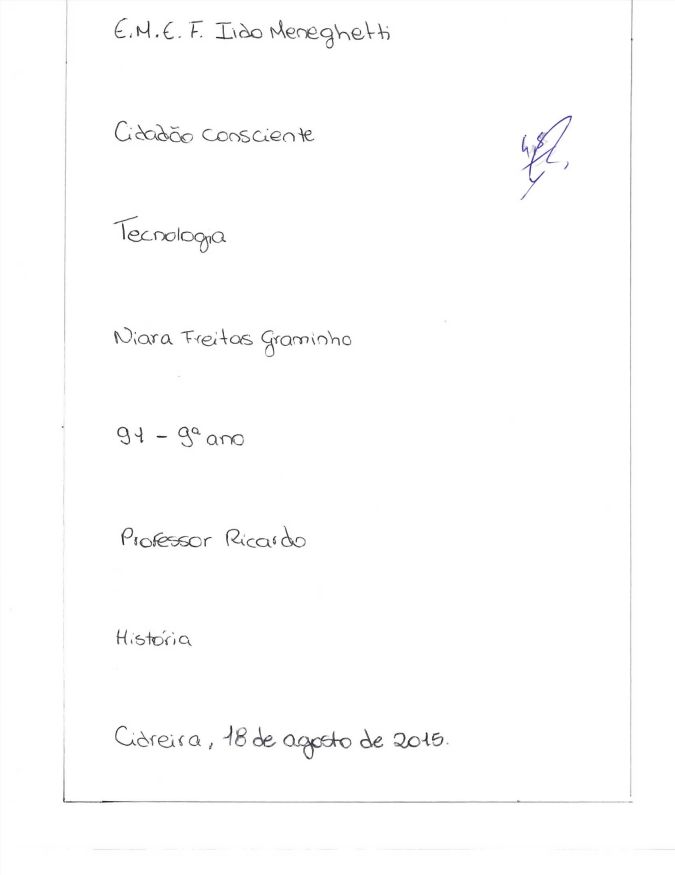 E.M.E.F. Ildo Meneghetti
Cidadão consciente
Tecnologia
Niara Freitas Graminho
91 - 9ª ano
Professor Ricardo
História
Cidreira, 18 de agosto de 2015.